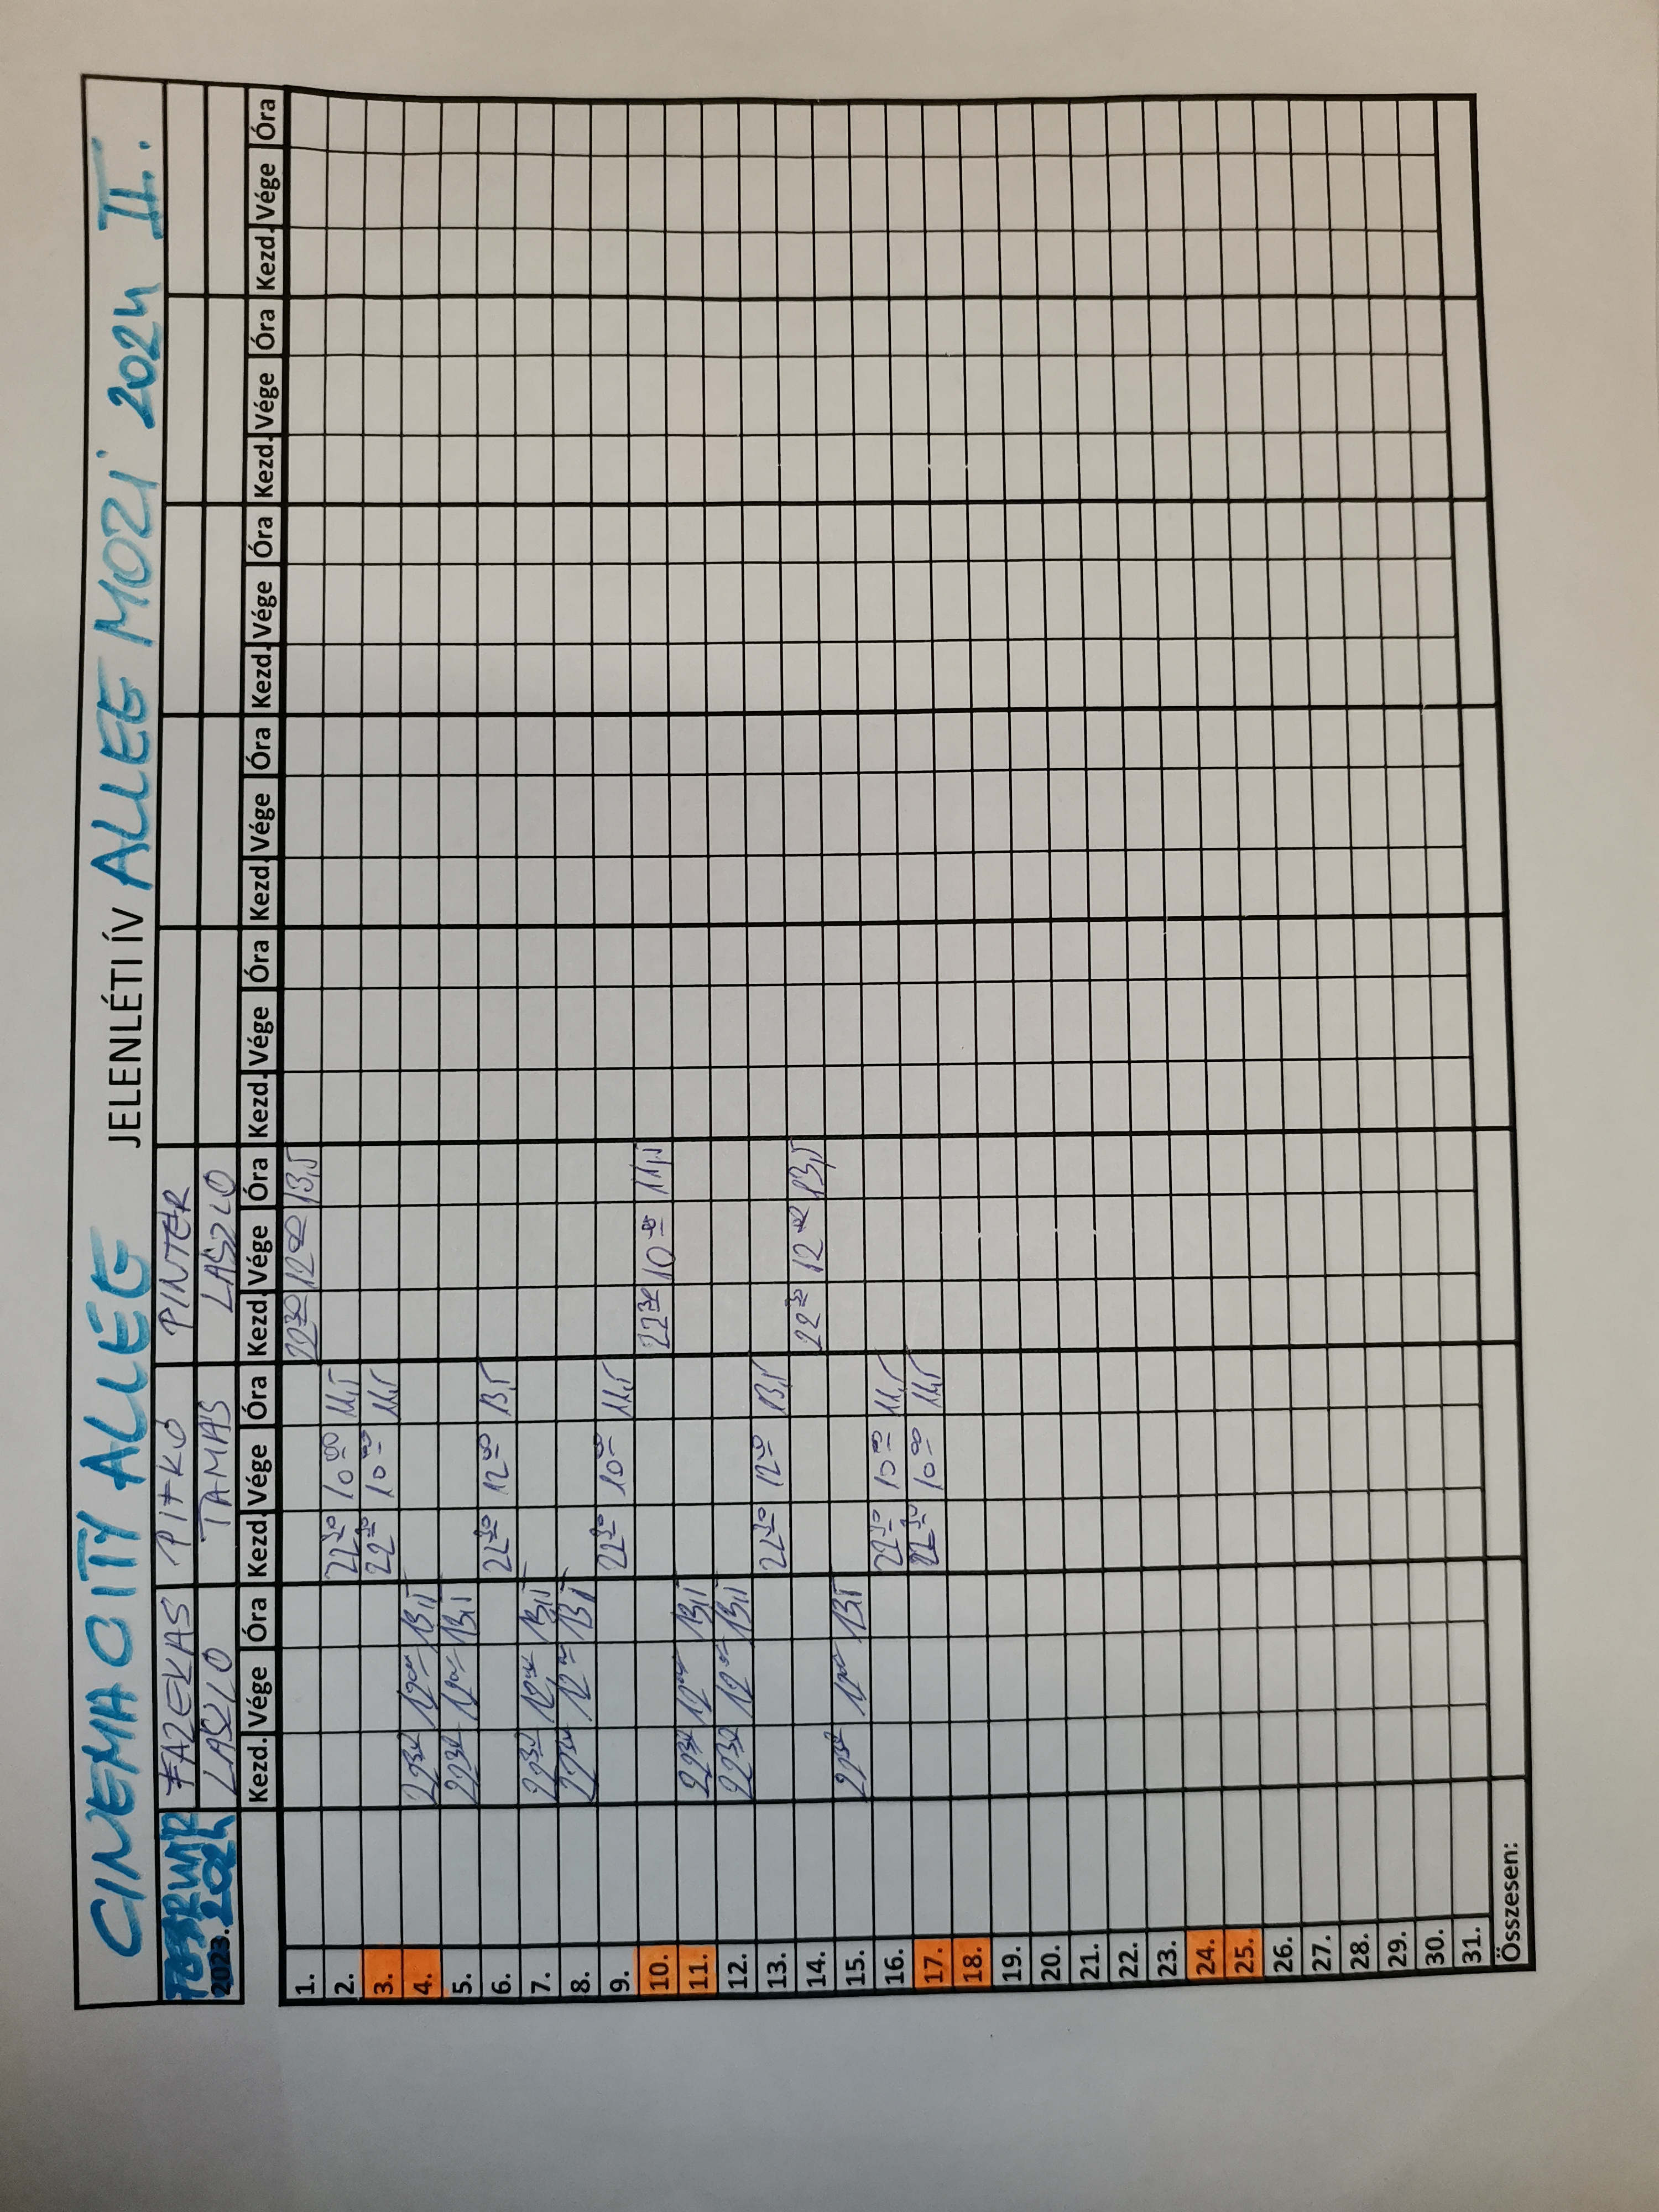 CINEMA CITY ALLEE JELENLÉTI ÍV ALLEE MOZI 2024 II.
FEBRUÁR FAZEKAS PITKÓ PINTÉR
2023. 2024 LÁSZLÓ TAMÁS LÁSZLÓ
Kezd. Vége Óra Kezd. Vége Óra Kezd. Vége Óra Kezd. Vége Óra Kezd. Vége Óra Kezd. Vége Óra Kezd. Vége Óra Kezd. Vége Óra
1. 22 30 12 00 13,5
2. 22 30 10 00 11,5
3. 22 30 10 00 11,5
4. 22 30 12 00 13,5
5. 22 30 12 00 13,5
6. 22 30 12 00 13,5
7. 22 30 12 00 13,5
8. 22 30 12 00 13,5
9. 22 30 10 00 11,5
10. 22 30 10 00 11,5
11. 22 30 12 00 13,5
12. 22 30 12 00 13,5
13. 22 30 12 00 13,5
14. 22 30 12 00 13,5
15. 22 30 12 00 13,5
16. 22 30 10 00 11,5
17. 22 30 10 00 11,5
18.
19.
20.
21.
22.
23.
24.
25.
26.
27.
28.
29.
30.
31.
Összesen: